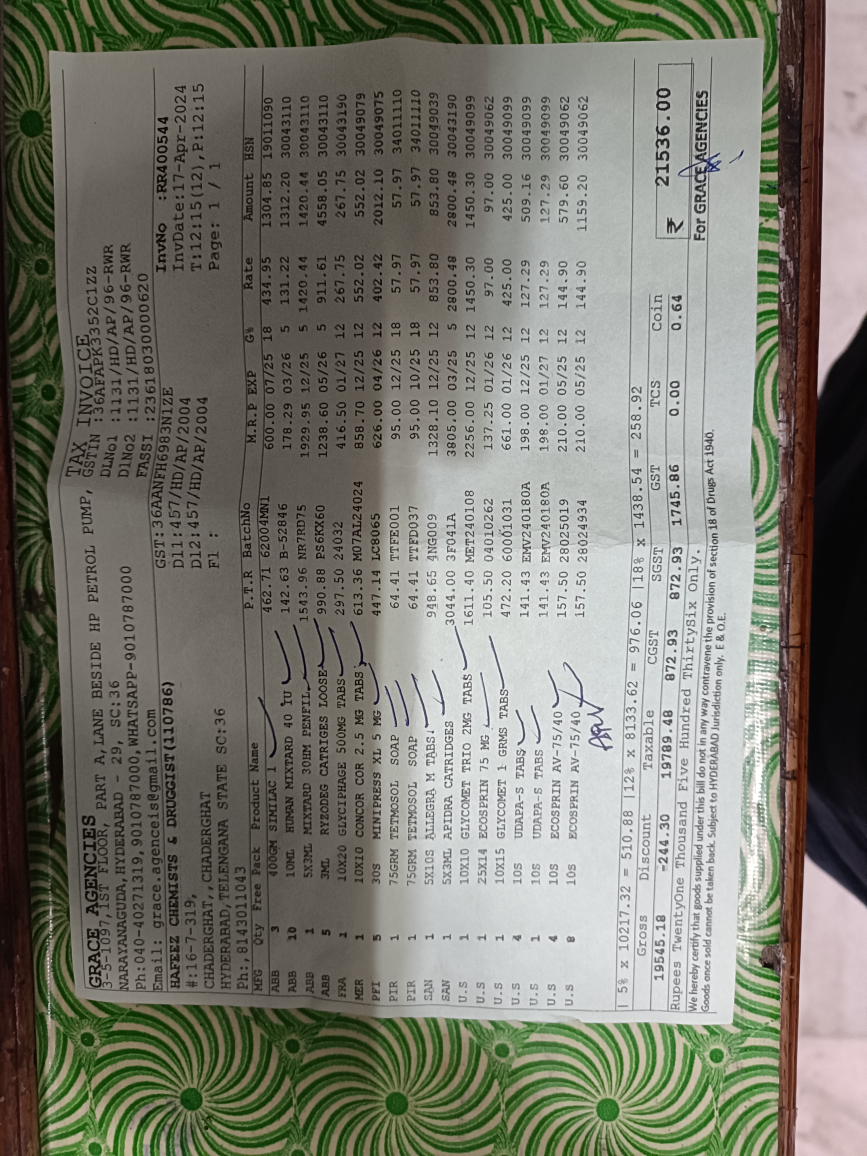 TAX INVOICE
GRACE AGENCIES
3-5-1097,1ST FLOOR, PART A,LANE BESIDE HP PETROL PUMP, GSTIN :36AFAPK3352C1ZZ
NARAYANAGUDA,HYDERABAD - 29, SC:36 DLNo1 :1131/HD/AP/96-RWR
Ph:040-40271319,9010787000,WHATSAPP-9010787000 DlNo2 :1131/HD/AP/96-RWR
Email: grace.agenceis@gmail.com FASSI :23618030000620
HAFEEZ CHEMISTS & DRUGGIST(110786) GST:36AANFH6983N1ZE InvNo :RR400544
#:16-7-319, D11:457/HD/AP/2004 InvDate:17-Apr-2024
CHADERGHAT,,CHADERGHAT D12:457/HD/AP/2004 T:12:15(12),P:12:15
HYDERABAD,TELENGANA STATE SC:36 Fl : Page: 1 / 1
Ph:,8143011043
MFG Qty Free Pack Product Name P.T.R BatchNo M.R.P EXP G% Rate Amount HSN
ABB 3 400GM SIMILAC 1 462.71 62004MN1 600.00 07/25 18 434.95 1304.85 19011090
ABB 10 10ML HUMAN MIXTARD 40 IU 142.63 B-52846 178.29 03/26 5 131.22 1312.20 30043110
ABB 1 5X3ML MIXTARD 30HM PENFIL 1543.96 NR7RD75 1929.95 12/25 5 1420.44 1420.44 30043110
ABB 5 3ML RYZODEG CATRIGES LOOSE 990.88 PS6KX60 1238.60 05/26 5 911.61 4558.05 30043110
FRA 1 10X20 GLYCIPHAGE 500MG TABS 297.50 24032 416.50 01/27 12 267.75 267.75 30043190
MER 1 10X10 CONCOR COR 2.5 MG TABS 613.36 M07AL24024 858.70 12/25 12 552.02 552.02 30049079
PFI 5 30S MINIPRESS XL 5 MG 447.14 LC8065 626.00 04/26 12 402.42 2012.10 30049075
PIR 1 75GRM TETMOSOL SOAP 64.41 TTFE001 95.00 12/25 18 57.97 57.97 34011110
PIR 1 75GRM TETMOSOL SOAP 64.41 TTFD037 95.00 10/25 18 57.97 57.97 34011110
SAN 1 5X10S ALLEGRA M TABS 948.65 4NG009 1328.10 12/25 12 853.80 853.80 30049039
SAN 1 5X3ML APIDRA CATRIDGES 3044.00 3F041A 3805.00 03/25 5 2800.48 2800.48 30043190
U.S 1 10X10 GLYCOMET TRIO 2MG TABS 1611.40 MET240108 2256.00 12/25 12 1450.30 1450.30 30049099
U.S 1 25X14 ECOSPRIN 75 MG 105.50 04010262 137.25 01/26 12 97.00 97.00 30049062
U.S 1 10X15 GLYCOMET 1 GRMS TABS 472.20 60001031 661.00 01/26 12 425.00 425.00 30049099
U.S 4 10S UDAPA-S TABS 141.43 EMV240180A 198.00 12/25 12 127.29 509.16 30049099
U.S 1 10S UDAPA-S TABS 141.43 EMV240180A 198.00 01/27 12 127.29 127.29 30049099
U.S 4 10S ECOSPRIN AV-75/40 157.50 28025019 210.00 05/25 12 144.90 579.60 30049062
U.S 8 10S ECOSPRIN AV-75/40 157.50 28024934 210.00 05/25 12 144.90 1159.20 30049062
| 5% x 10217.32 = 510.88 |12% x 8133.62 = 976.06 |18% x 1438.54 = 258.92
Gross Discount Taxable CGST SGST GST TCS Coin
19545.18 -244.30 19789.48 872.93 872.93 1745.86 0.00 0.64 ₹ 21536.00
Rupees TwentyOne Thousand Five Hundred ThirtySix Only.
We hereby certify that goods supplied under this bill do not in any way contravene the provision of section 18 of Drugs Act 1940. For GRACE AGENCIES
Goods once sold cannot be taken back. Subject to HYDERABAD Jurisdiction only. E & O.E.